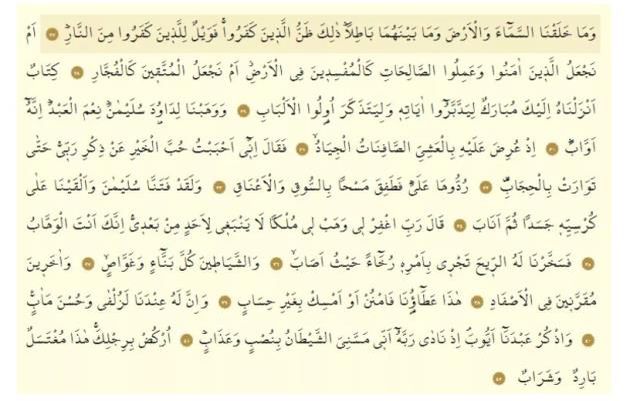 وَمَا خَلَقْنَا السَّمَٓاءَ وَالْاَرْضَ وَمَا بَيْنَهُمَا بَاطِلًاۜ ذٰلِكَ ظَنُّ الَّذ۪ينَ كَفَرُواۚ فَوَيْلٌ لِلَّذ۪ينَ كَفَرُوا مِنَ النَّارِۜ ﴿٢٧﴾ اَمْ
نَجْعَلُ الَّذ۪ينَ اٰمَنُوا وَعَمِلُوا الصَّالِحَاتِ كَالْمُفْسِد۪ينَ فِي الْاَرْضِۘ اَمْ نَجْعَلُ الْمُتَّق۪ينَ كَالْفُجَّارِ ﴿٢٨﴾ كِتَابٌ
اَنْزَلْنَاهُ اِلَيْكَ مُبَارَكٌ لِيَدَّبَّرُٓوا اٰيَاتِه۪ وَلِيَتَذَكَّرَ اُو۬لُوا الْاَلْبَابِ ﴿٢٩﴾ وَوَهَبْنَا لِدَاوُ۫دَ سُلَيْمٰنَۜ نِعْمَ الْعَبْدُۜ اِنَّهُٓ
اَوَّابٌۜ ﴿٣٠﴾ اِذْ عُرِضَ عَلَيْهِ بِالْعَشِيِّ الصَّافِنَاتُ الْجِيَادُۙ ﴿٣١﴾ فَقَالَ اِنّ۪ٓي اَحْبَبْتُ حُبَّ الْخَيْرِ عَنْ ذِكْرِ رَبّ۪يۚ حَتّٰى
تَوَارَتْ بِالْحِجَابِ۠ ﴿٣٢﴾ رُدُّوهَا عَلَيَّۜ فَطَفِقَ مَسْحًا بِالسُّوقِ وَالْاَعْنَاقِ ﴿٣٣﴾ وَلَقَدْ فَتَنَّا سُلَيْمٰنَ وَاَلْقَيْنَا عَلٰى
كُرْسِيِّه۪ جَسَدًا ثُمَّ اَنَابَ ﴿٣٤﴾ قَالَ رَبِّ اغْفِرْ ل۪ي وَهَبْ ل۪ي مُلْكًا لَا يَنْبَغ۪ي لِاَحَدٍ مِنْ بَعْد۪يۚ اِنَّكَ اَنْتَ الْوَهَّابُ
﴿٣٥﴾ فَسَخَّرْنَا لَهُ الرّ۪يحَ تَجْر۪ي بِاَمْرِه۪ رُخَٓاءً حَيْثُ اَصَابَۙ ﴿٣٦﴾ وَالشَّيَاط۪ينَ كُلَّ بَنَّٓاءٍ وَغَوَّاصٍۙ ﴿٣٧﴾ وَاٰخَر۪ينَ
مُقَرَّن۪ينَ فِي الْاَصْفَادِ ﴿٣٨﴾ هٰذَا عَطَٓاؤُ۬نَا فَامْنُنْ اَوْ اَمْسِكْ بِغَيْرِ حِسَابٍ ﴿٣٩﴾ وَاِنَّ لَهُ عِنْدَنَا لَزُلْفٰى وَحُسْنَ مَاٰبٍ۟
﴿٤٠﴾ وَاذْكُرْ عَبْدَنَٓا اَيُّوبَۢ اِذْ نَادٰى رَبَّهُٓ اَنّ۪ي مَسَّنِيَ الشَّيْطَانُ بِنُصْبٍ وَعَذَابٍۜ ﴿٤١﴾ اُرْكُضْ بِرِجْلِكَۚ هٰذَا مُغْتَسَلٌ
بَارِدٌ وَشَرَابٌ ﴿٤٢﴾